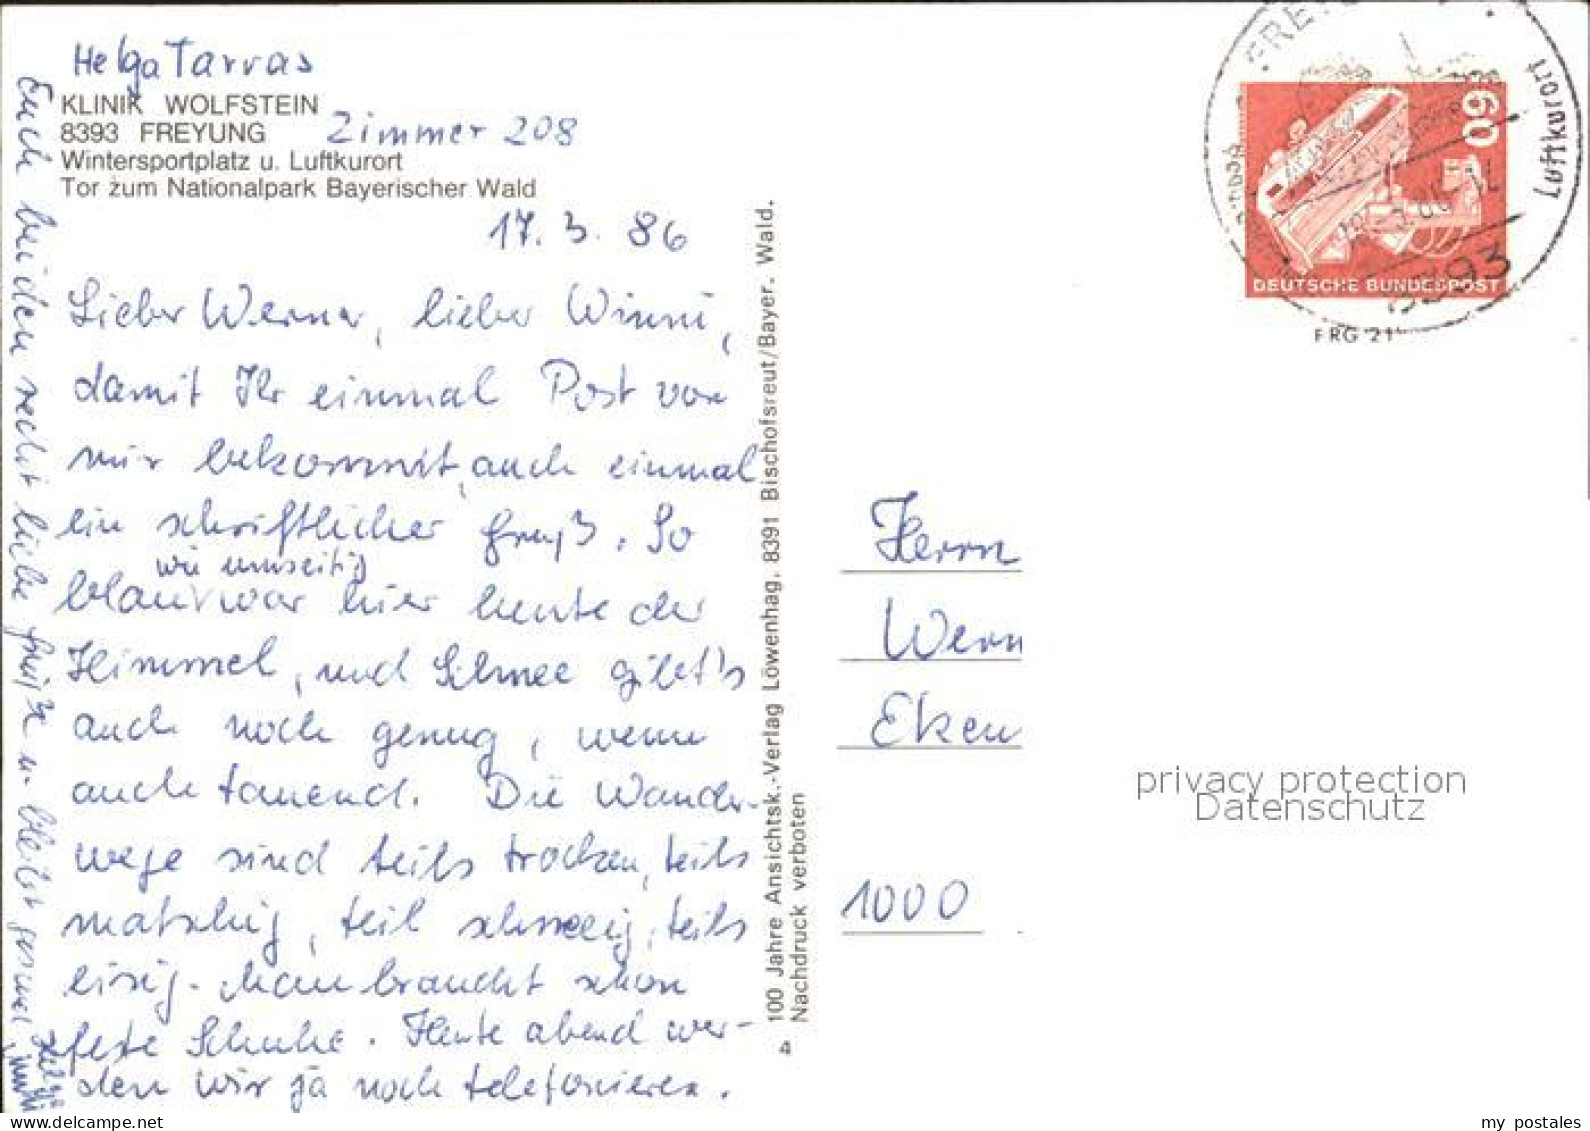 Helga Tarras
KLINIK WOLFSTEIN
8393 FREYUNG Zimmer 208
Wintersportplatz u. Luftkurort
Tor zum Nationalpark Bayerischer Wald
17. 3. 86
Lieber Werner, lieber Winni,
damit Ihr einmal Post von
mir bekommt, auch einmal
ein schriftlicher Gruß. So
wie umseitig
blau war hier heute der
Himmel, und Schnee gibt's
auch noch genug, wenn
auch tauend. Die Wander-
wege sind teils trocken, teils
matschig, teil schneeig, teils
eisig. Man braucht schon
feste Schuhe. Heute abend wer-
den wir ja noch telefonieren.
Euch beiden recht liebe Grüße u. bleibt gesund
100 Jahre Ansichtsk.-Verlag Löwenhag, 8391 Bischofsreut/Bayer. Wald.
Nachdruck verboten
4
60
DEUTSCHE BUNDESPOST
Luftkurort
8393
FRG 21
Herrn
Wern
Eken
1000
privacy protection
Datenschutz
my postales